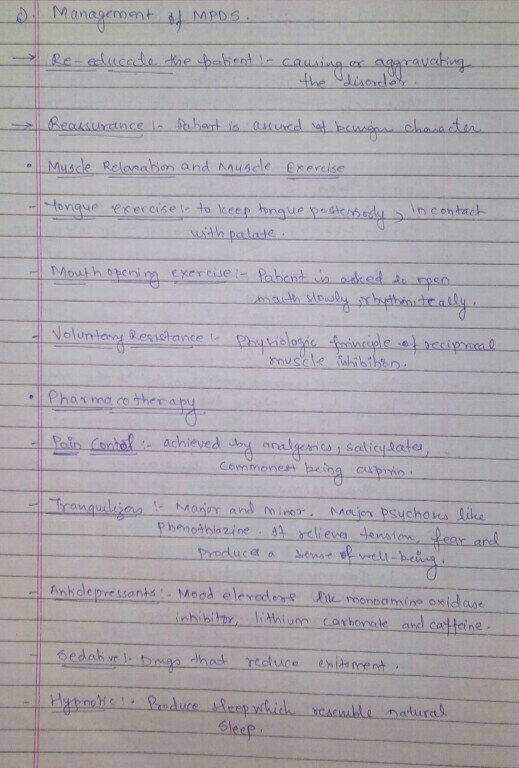 2). Management of MPDS.
→ Re-educate the patient :- causing or aggravating
the disorder.
→ Reassurance :- Patient is assured of benign character
• Muscle Relaxation and Muscle Exercise
- Tongue exercise :- to keep tongue posteriorly, in contact
with palate.
- Mouth opening exercise :- Patient is asked to open
mouth slowly, rhythmiteally.
- Voluntary Resistance :- Physiologic principle of reciprocal
muscle inhibition.
• Pharmacotherapy
- Pain Contol :- achieved by analgesics, salicylates,
commonest being asprin.
- Tranquilizers :- Manor and minor. Major Psychoses like
Phenothiazine. It relieves tension, fear and
produces a sense of well-being.
- Antidepressants :- Mood elevators like monoamine oxidase
inhibitor, lithium carbonate and caffeine.
- Sedative :- Drugs that reduce exitement.
- Hypnotic :- Produce sleep which resemble natural
sleep.